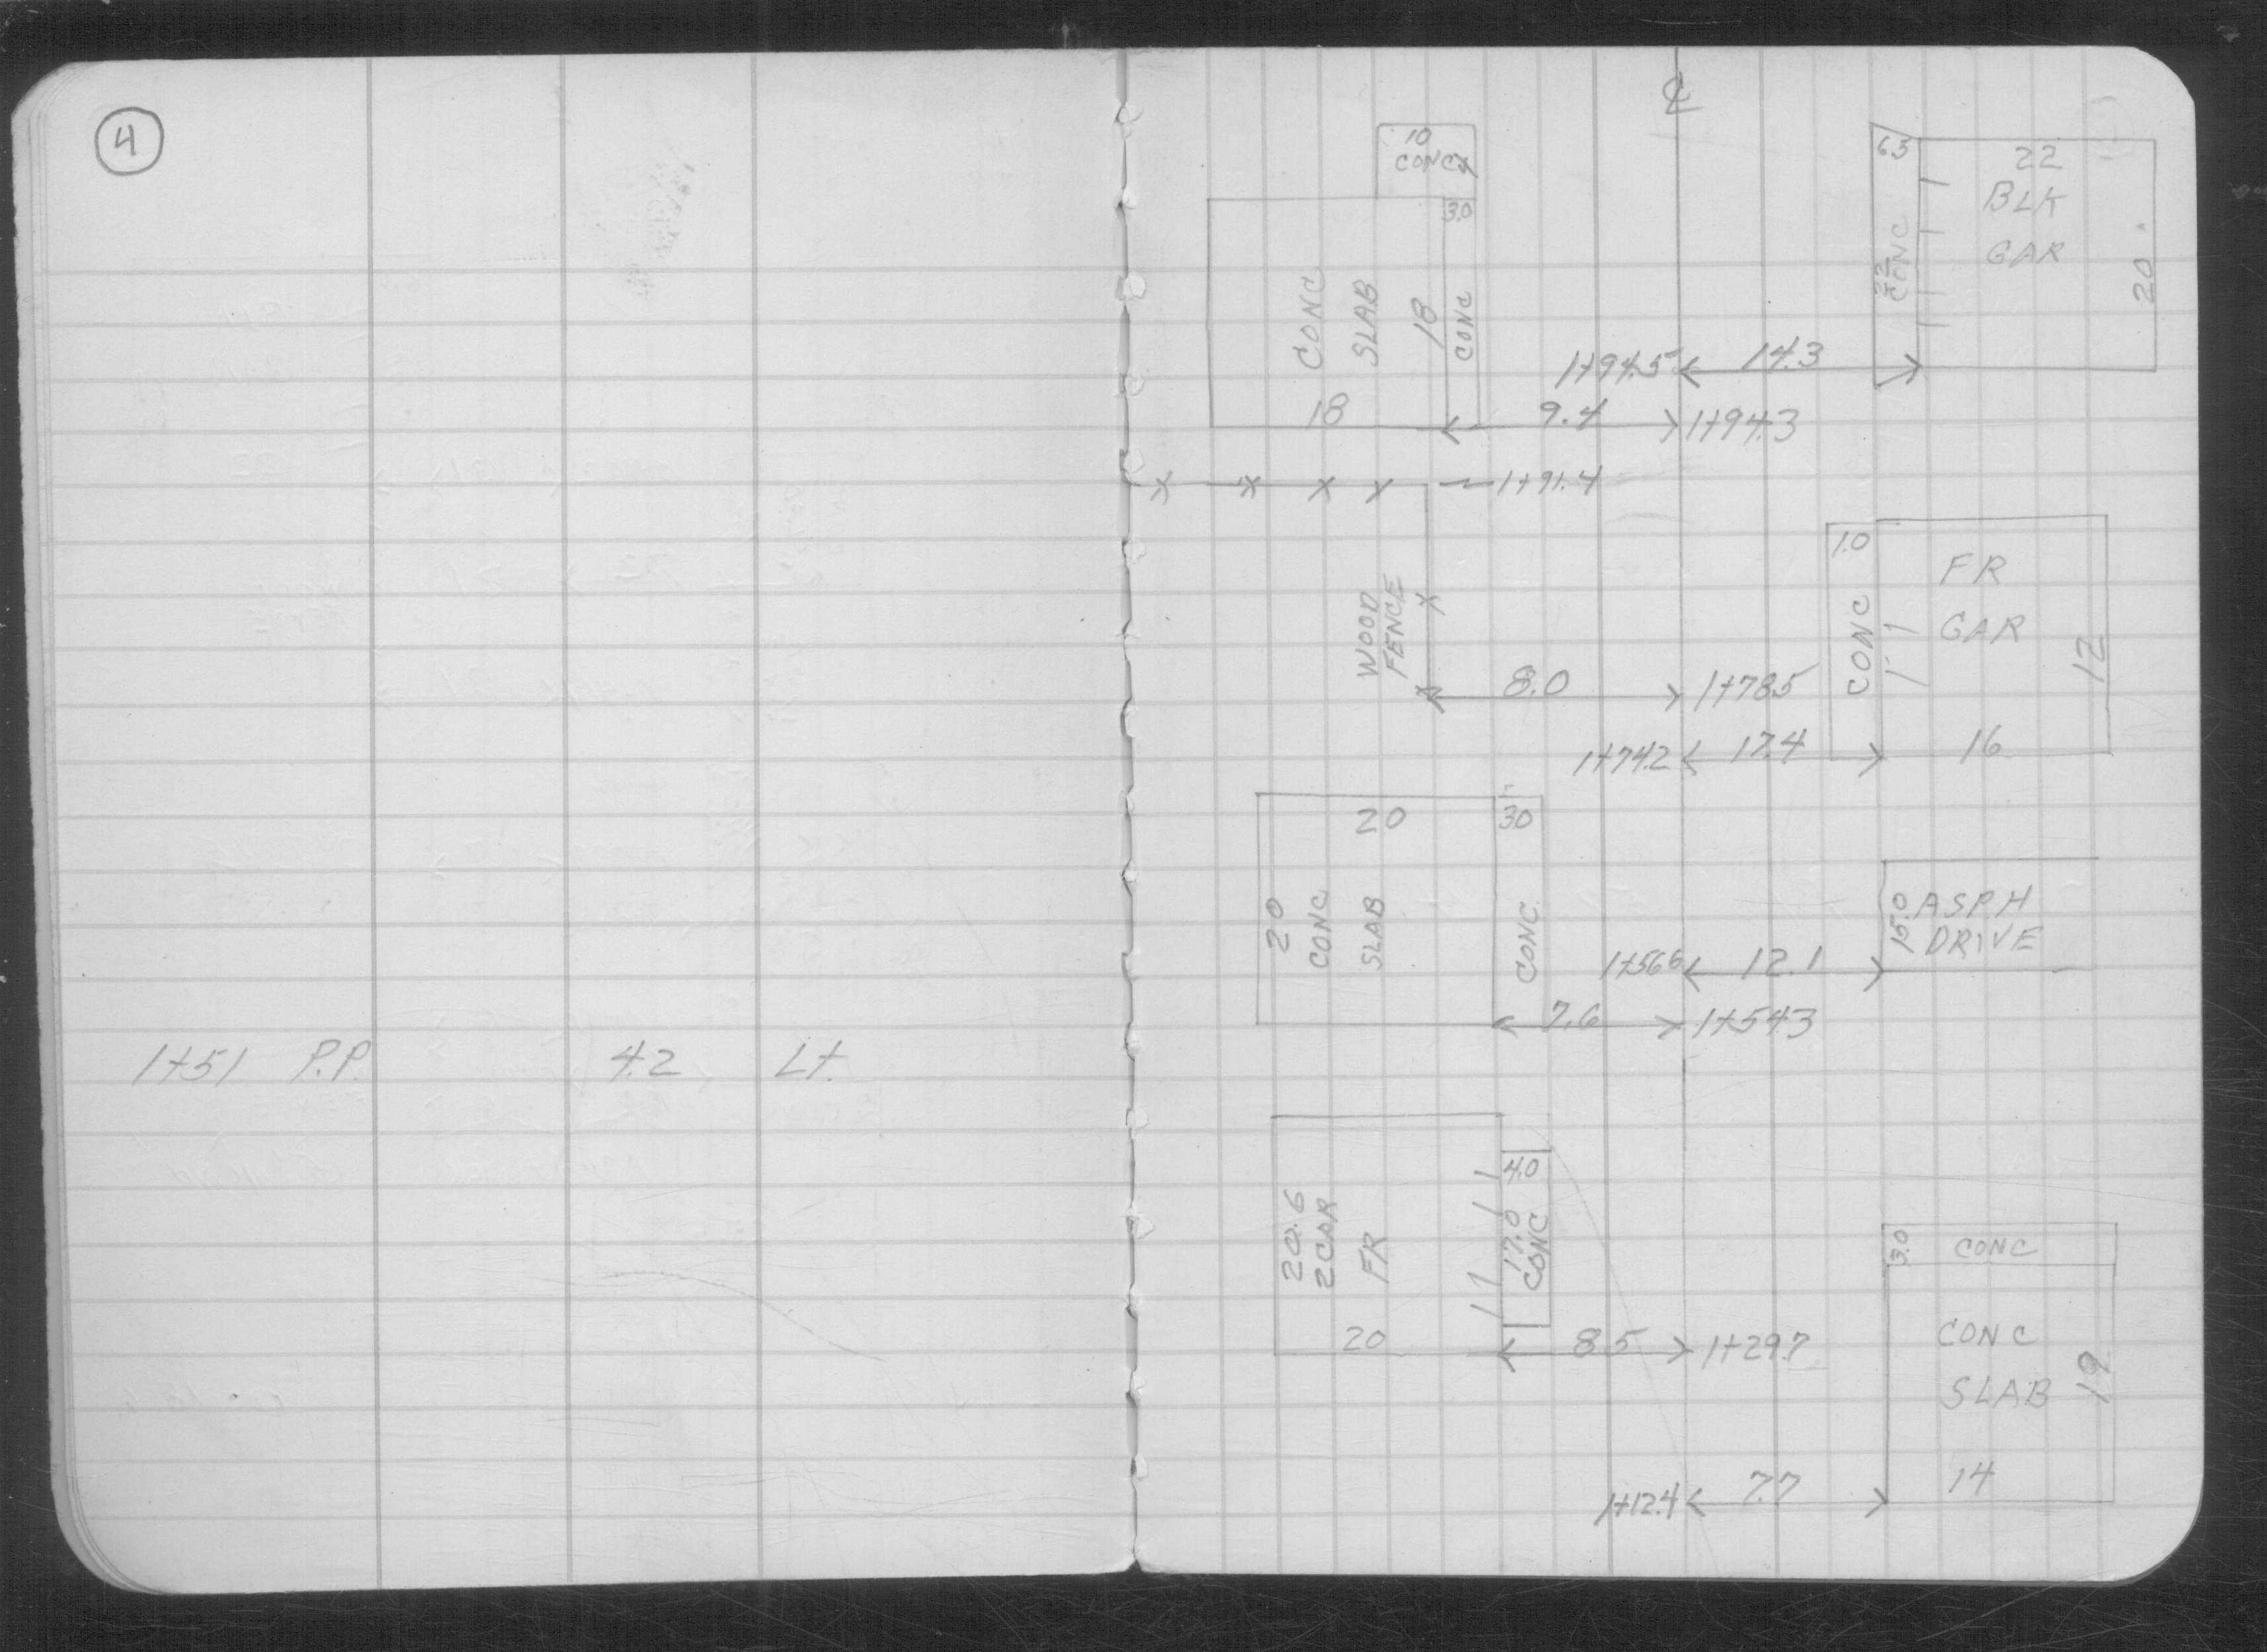 4
1+51 P.P. 4.2 Lt.
℄
10
CONC
4
6.3
22
BLK
GAR
20
CONC
3.0
CONC
SLAB
18
CONC
18
1+94.5 14.3
9.4 1+94.3
1+91.4
WOOD
FENCE
1.0
FR
GAR
CONC
12
16
8.0 1+78.5
1+74.2 17.4
20
3.0
20
CONC
SLAB
CONC
15.0
ASPH
DRIVE
1+56.6 12.1
7.6 1+54.3
4.0
20.6
2 CAR
FR
17.0
CONC
20
8.5 1+29.7
3.0
CONC
CONC
SLAB
19
14
1+12.4 7.7